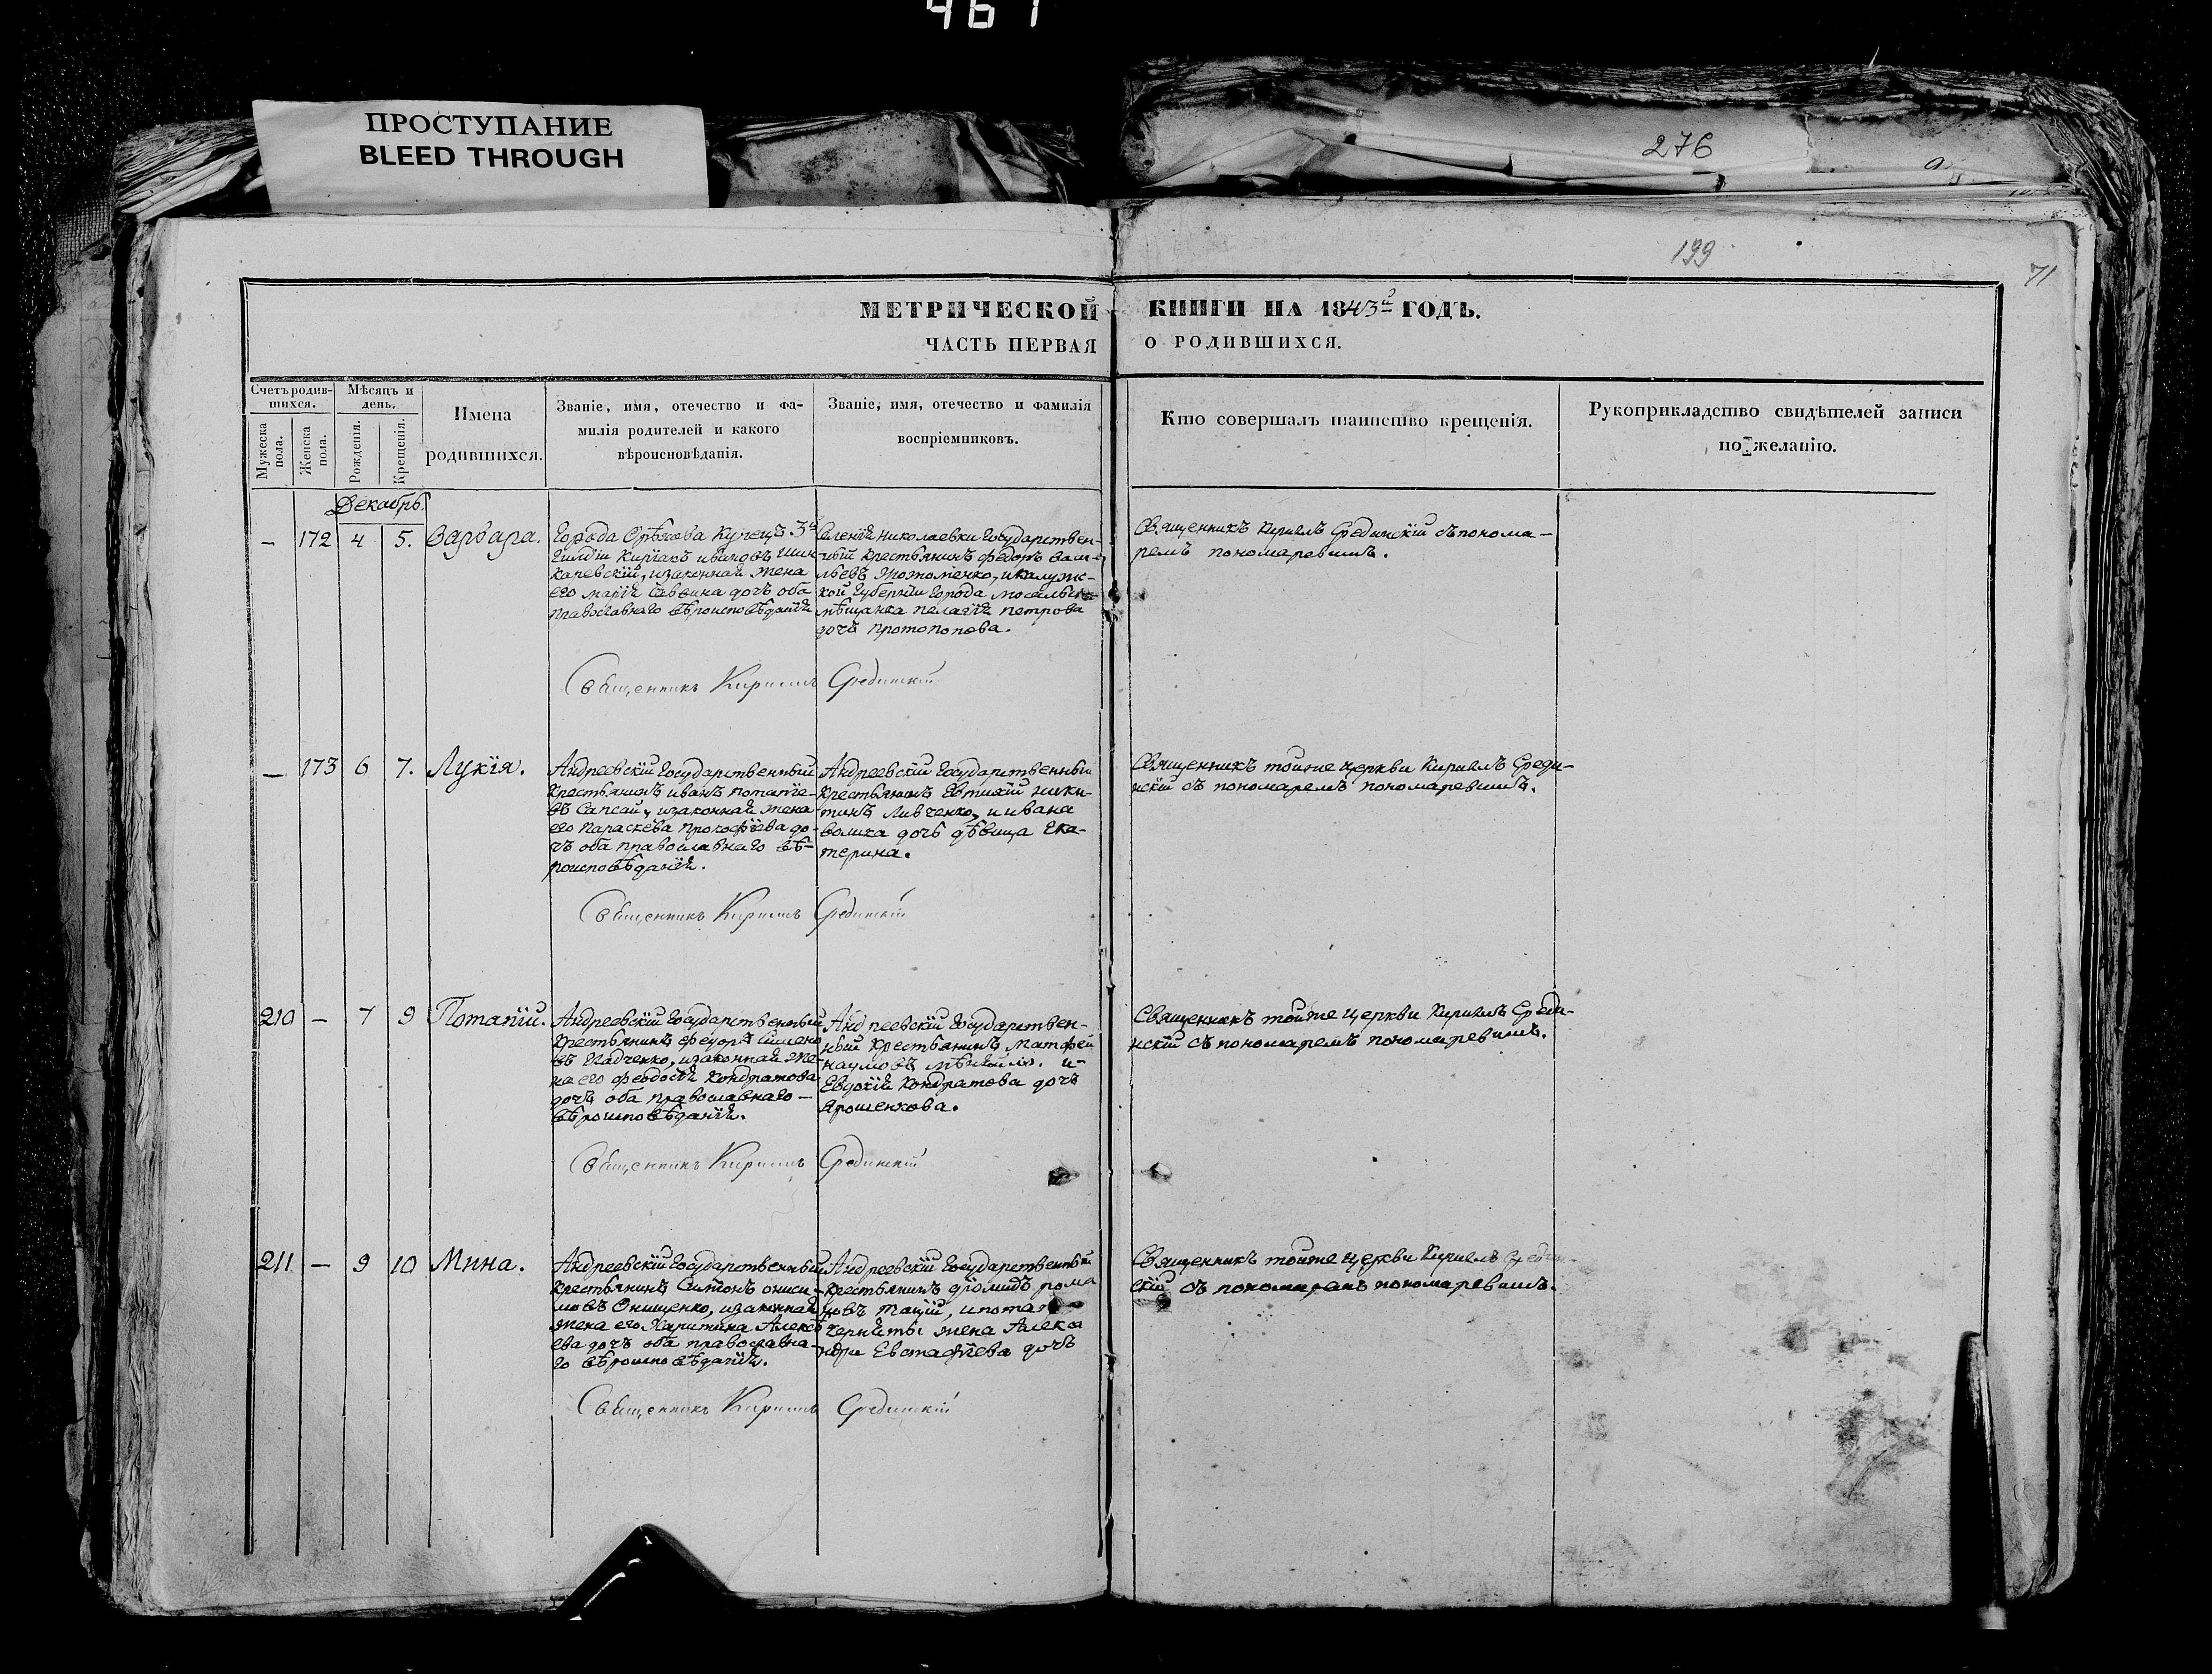 461
ПРОСТУПАНИЕ
BLEED THROUGH
276
199
71
МЕТРИЧЕСКОЙ КНИГИ НА 1843й ГОДЪ.
ЧАСТЬ ПЕРВАЯ О РОДИВШИХСЯ.
Счетъ родив-
шихся.
Мужеска
пола.
Женска
пола.
Мѣсяцъ и
день.
Рожденія.
Крещенія.
Имена
родившихся.
Званіе, имя, отечество и фа-
милія родителей и какого
вѣроисновѣданія.
Званіе, имя, отечество и фамилія
воспріемниковъ.
Кто совершалъ таинство крещенія.
Рукоприкладство свидѣтелей записи
по желанію.
Декабрь.
— 172 4 5. Варвара.
Города Орѣхова Купецъ 3й
Гильдіи Киріакъ Ивановъ
каревскій, изаконная жена
его Марія Саввина дочь оба
православнаго вѣроисповѣданія
Селенія Николаевки Государствен-
ный крестьянинъ Федоръ Васи-
льевъ икалуж-
кой Губерніи города
мѣщанка Пелагія Петрова
дочь Протопопова.
Священникъ Кирилъ Срединскій съ понома-
ремъ пономаревимъ.
Священникъ Кирилъ Срединскій
— 173 6 7. Лукія.
Андреевскій Государственный
крестьянинъ Иванъ Потапіе-
въ Сапсай, изаконная жена
его Параскева Прокофіева до-
чь оба православнаго вѣ-
роисповѣданія.
Андреевскій Государственный
крестьянинъ Евтихій Ники-
тинъ Ливченко, и Ивана
волика дочь дѣвица Ека-
терина.
Священникъ тойже церкви Кирилъ Среди-
нскій съ пономаремъ пономаревимъ.
Священникъ Кирилъ Срединскій
210 — 7 9 Потапій.
Андреевскій Государственный
крестьянинъ Феодоръ Симено
въ изаконная же-
на его Феодосія Кондратова
дочь оба православнаго —
вѣроисповѣданія.
Андреевскій Государствен-
ный крестьянинъ Матфей
Наумовъ и
Евдокія Кондратова дочь
Ярошенкова.
Священникъ тойже церкви Кирилъ Среди-
нскій съ пономаремъ пономаревимъ.
Священникъ Кирилъ Срединскій
211 — 9 10 Мина.
Андреевскій Государственный
крестьянинъ Антонъ Ониси-
мовъ Онищенко, изаконная
жена его Харитина Алексѣ
ева дочь оба православна-
го вѣроисповѣданія.
Андреевскій Государственный
крестьянинъ Діомидъ Рома
новъ ипота
жена Алекса
ндра Евстафіева дочь
Священникъ тойже церкви Кирилъ Среди-
скій съ пономаремъ пономаревимъ.
Священникъ Кирилъ Срединскій